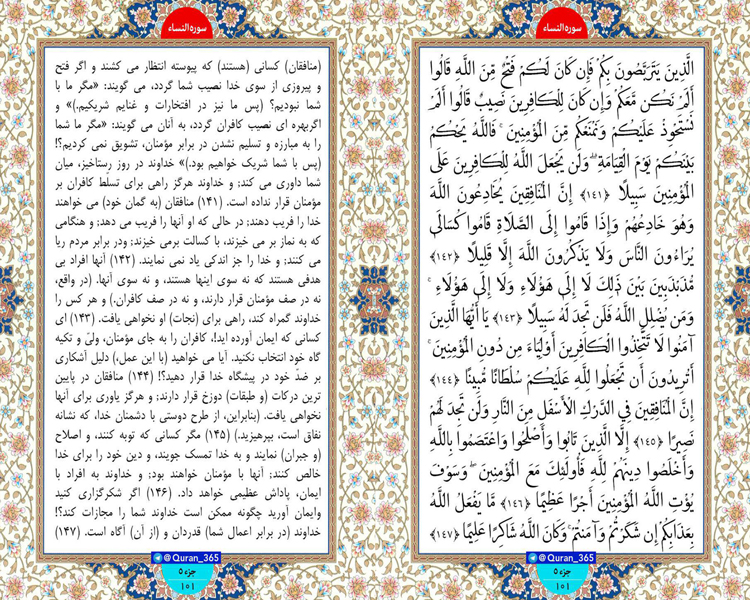 سوره النساء
الَّذِينَ يَتَرَبَّصُونَ بِكُمْ فَإِن كَانَ لَكُمْ فَتْحٌ مِّنَ اللَّهِ قَالُوا
أَلَمْ نَكُن مَّعَكُمْ وَإِن كَانَ لِلْكَافِرِينَ نَصِيبٌ قَالُوا أَلَمْ
نَسْتَحْوِذْ عَلَيْكُمْ وَنَمْنَعْكُم مِّنَ الْمُؤْمِنِينَ ۚ فَاللَّهُ يَحْكُمُ
بَيْنَكُمْ يَوْمَ الْقِيَامَةِ ۗ وَلَن يَجْعَلَ اللَّهُ لِلْكَافِرِينَ عَلَى
الْمُؤْمِنِينَ سَبِيلًا ﴿١٤١﴾ إِنَّ الْمُنَافِقِينَ يُخَادِعُونَ اللَّهَ
وَهُوَ خَادِعُهُمْ وَإِذَا قَامُوا إِلَى الصَّلَاةِ قَامُوا كُسَالَىٰ
يُرَاءُونَ النَّاسَ وَلَا يَذْكُرُونَ اللَّهَ إِلَّا قَلِيلًا ﴿١٤٢﴾
مُّذَبْذَبِينَ بَيْنَ ذَٰلِكَ لَا إِلَىٰ هَٰؤُلَاءِ وَلَا إِلَىٰ هَٰؤُلَاءِ ۚ
وَمَن يُضْلِلِ اللَّهُ فَلَن تَجِدَ لَهُ سَبِيلًا ﴿١٤٣﴾ يَا أَيُّهَا الَّذِينَ
آمَنُوا لَا تَتَّخِذُوا الْكَافِرِينَ أَوْلِيَاءَ مِن دُونِ الْمُؤْمِنِينَ ۚ
أَتُرِيدُونَ أَن تَجْعَلُوا لِلَّهِ عَلَيْكُمْ سُلْطَانًا مُّبِينًا ﴿١٤٤﴾
إِنَّ الْمُنَافِقِينَ فِي الدَّرْكِ الْأَسْفَلِ مِنَ النَّارِ وَلَن تَجِدَ لَهُمْ
نَصِيرًا ﴿١٤٥﴾ إِلَّا الَّذِينَ تَابُوا وَأَصْلَحُوا وَاعْتَصَمُوا بِاللَّهِ
وَأَخْلَصُوا دِينَهُمْ لِلَّهِ فَأُولَٰئِكَ مَعَ الْمُؤْمِنِينَ ۖ وَسَوْفَ
يُؤْتِ اللَّهُ الْمُؤْمِنِينَ أَجْرًا عَظِيمًا ﴿١٤٦﴾ مَّا يَفْعَلُ اللَّهُ
بِعَذَابِكُمْ إِن شَكَرْتُمْ وَآمَنتُمْ ۚ وَكَانَ اللَّهُ شَاكِرًا عَلِيمًا ﴿١٤٧﴾
@Quran_365
جزء ۵
۱۰۱
سوره النساء
(منافقان) کسانی (هستند) که پیوسته انتظار می کشند و اگر فتح
و پیروزی از سوی خدا نصیب شما گردد، می گویند: «مگر ما با
شما نبودیم؟ (پس ما نیز در افتخارات و غنایم شریکیم.)» و
اگربهره ای نصیب کافران گردد، به آنان می گویند: «مگر ما شما
را به مبارزه و تسلیم نشدن در برابر مؤمنان، تشویق نمی کردیم؟!
(پس با شما شریک خواهیم بود.)» خداوند در روز رستاخیز، میان
شما داوری می کند؛ و خداوند هرگز راهی برای تسلّط کافران بر
مؤمنان قرار نداده است. (۱۴۱) منافقان (به گمان خود) می خواهند
خدا را فریب دهند؛ در حالی که او آنها را فریب می دهد؛ و هنگامی
که به نماز بر می خیزند، با کسالت برمی خیزند؛ ودر برابر مردم ریا
می کنند؛ و خدا را جز اندکی یاد نمی نمایند. (۱۴۲) آنها افراد بی
هدفی هستند که نه سوی اینها هستند، و نه سوی آنها. (در واقع،
نه در صف مؤمنان قرار دارند، و نه در صف کافران.) و هر کس را
خداوند گمراه کند، راهی برای (نجات) او نخواهی یافت. (۱۴۳) ای
کسانی که ایمان آورده اید!، کافران را به جای مؤمنان، ولیّ و تکیه
گاه خود انتخاب نکنید. آیا می خواهید (با این عمل،) دلیل آشکاری
بر ضدّ خود در پیشگاه خدا قرار دهید؟! (۱۴۴) منافقان در پایین
ترین درکات (و طبقات) دوزخ قرار دارند؛ و هرگز یاوری برای آنها
نخواهی یافت. (بنابراین، از طرح دوستی با دشمنان خدا، که نشانه
نفاق است، بپرهیزید.) (۱۴۵) مگر کسانی که توبه کنند، و اصلاح
(و جبران) نمایند و به خدا تمسک جویند، و دین خود را برای خدا
خالص کنند؛ آنها با مؤمنان خواهند بود؛ و خداوند به افراد با
ایمان، پاداش عظیمی خواهد داد. (۱۴۶) اگر شکرگزاری کنید
وایمان آورید چگونه ممکن است خداوند شما را مجازات کند؟!
خداوند (در برابر اعمال شما) قدردان و (از آن) آگاه است. (۱۴۷)
@Quran_365
جزء ۵
۱۰۱